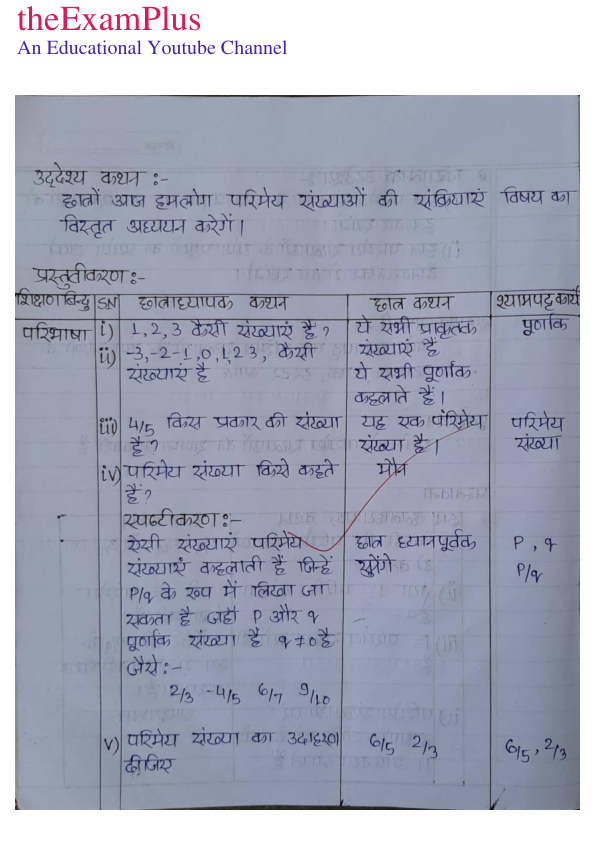 theExamPlus
An Educational Youtube Channel
उद्देश्य कथन :-
छात्रों आज हमलोग परिमेय संख्याओं की संक्रियाएं विषय का
विस्तृत अध्ययन करेगें।
प्रस्तुतीकरण:-
शिक्षण बिन्दु S.N छात्राध्यापक कथन छात्र कथन श्यामपट्ट कार्य
परिभाषा i) 1, 2, 3 कैसी संख्याएं है? ये सभी प्राकृतक पूर्णांक
ii) -3,-2-1,0,1,2 3, कैसी संख्याएं है
संख्याएं है ये सभी पूर्णांक
कहलाते हैं।
iii) 4/5 किस प्रकार की संख्या यह एक परिमेय परिमेय
है? संख्या है। संख्या
iv) परिमेय संख्या किसे कहते मौन
हैं?
स्पष्टीकरण:-
ऐसी संख्याएं परिमेय छात्र ध्यानपूर्वक P, q
संख्याएं कहलाती हैं जिन्हें सुनेंगे P/q
P/q के रूप में लिखा जा
सकता है जहाँ P और q
पूर्णांक संख्या है q ≠ 0 है
जैसे:-
2/3 -4/5 6/7 9/10
v) परिमेय संख्या का उदाहरण 6/5 2/3 6/5, 2/3
दीजिए